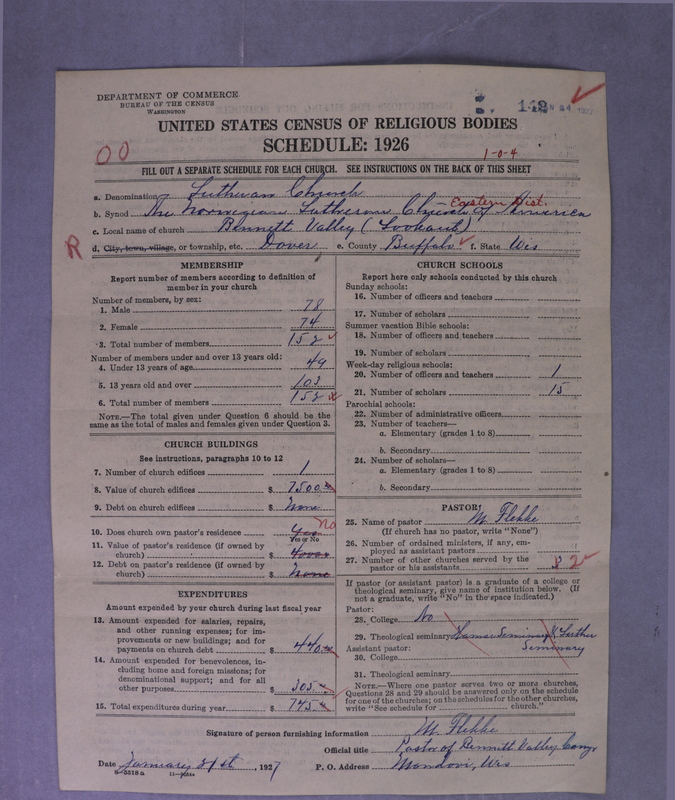 DEPARTMENT OF COMMERCE
BUREAU OF THE CENSUS
WASHINGTON
UNITED STATES CENSUS OF RELIGIOUS BODIES
SCHEDULE: 1926
00
1-0-4
FILL OUT A SEPARATE SCHEDULE FOR EACH CHURCH. SEE INSTRUCTIONS ON THE BACK OF THIS SHEET
a. Denomination Lutheran Church
Eastern Dist.
b. Synod The Norwegian Lutheran Church of America
c. Local name of church Bennett Valley (Lookout)
R d. City, town, village, or township, etc. Dover e. County Buffalo f. State Wis
MEMBERSHIP
Report number of members according to definition of
member in your church
Number of members, by sex:
1. Male 78
2. Female 74
3. Total number of members 152
Number of members under and over 13 years old:
4. Under 13 years of age 49
5. 13 years old and over 103
6. Total number of members 152
NOTE.—The total given under Question 6 should be the
same as the total of males and females given under Question 3.
CHURCH BUILDINGS
See instructions, paragraphs 10 to 12
7. Number of church edifices 1
8. Value of church edifices $ 7500
9. Debt on church edifices $ None
10. Does church own pastor's residence Yes no
Yes or No
11. Value of pastor's residence (if owned by
church) $ 4000
12. Debt on pastor's residence (if owned by
church) $ None
EXPENDITURES
Amount expended by your church during last fiscal year
13. Amount expended for salaries, repairs,
and other running expenses; for im-
provements or new buildings; and for
payments on church debt $ 440
14. Amount expended for benevolences, in-
cluding home and foreign missions; for
denominational support; and for all
other purposes $ 305
15. Total expenditures during year $ 745
CHURCH SCHOOLS
Report here only schools conducted by this church
Sunday schools:
16. Number of officers and teachers
17. Number of scholars
Summer vacation Bible schools:
18. Number of officers and teachers
19. Number of scholars
Week-day religious schools:
20. Number of officers and teachers 1
21. Number of scholars 15
Parochial schools:
22. Number of administrative officers
23. Number of teachers—
a. Elementary (grades 1 to 8)
b. Secondary
24. Number of scholars—
a. Elementary (grades 1 to 8)
b. Secondary
PASTOR
25. Name of pastor M. Flekke
(If church has no pastor, write "None")
26. Number of ordained ministers, if any, em-
ployed as assistant pastors
27. Number of other churches served by the
pastor or his assistants 2
If pastor (or assistant pastor) is a graduate of a college or
theological seminary, give name of institution below. (If
not a graduate, write "No" in the space indicated.)
Pastor:
28. College No
29. Theological seminary Seminary & Luther
Assistant pastor: Seminary
30. College
31. Theological seminary
NOTE.—Where one pastor serves two or more churches,
Questions 28 and 29 should be answered only on the schedule
for one of the churches; on the schedules for the other churches,
write "See schedule for church."
Signature of person furnishing information M. Flekke
Official title Pastor of Bennett Valley Congr
Date January 21st, 1927 P. O. Address Mondovi, Wis